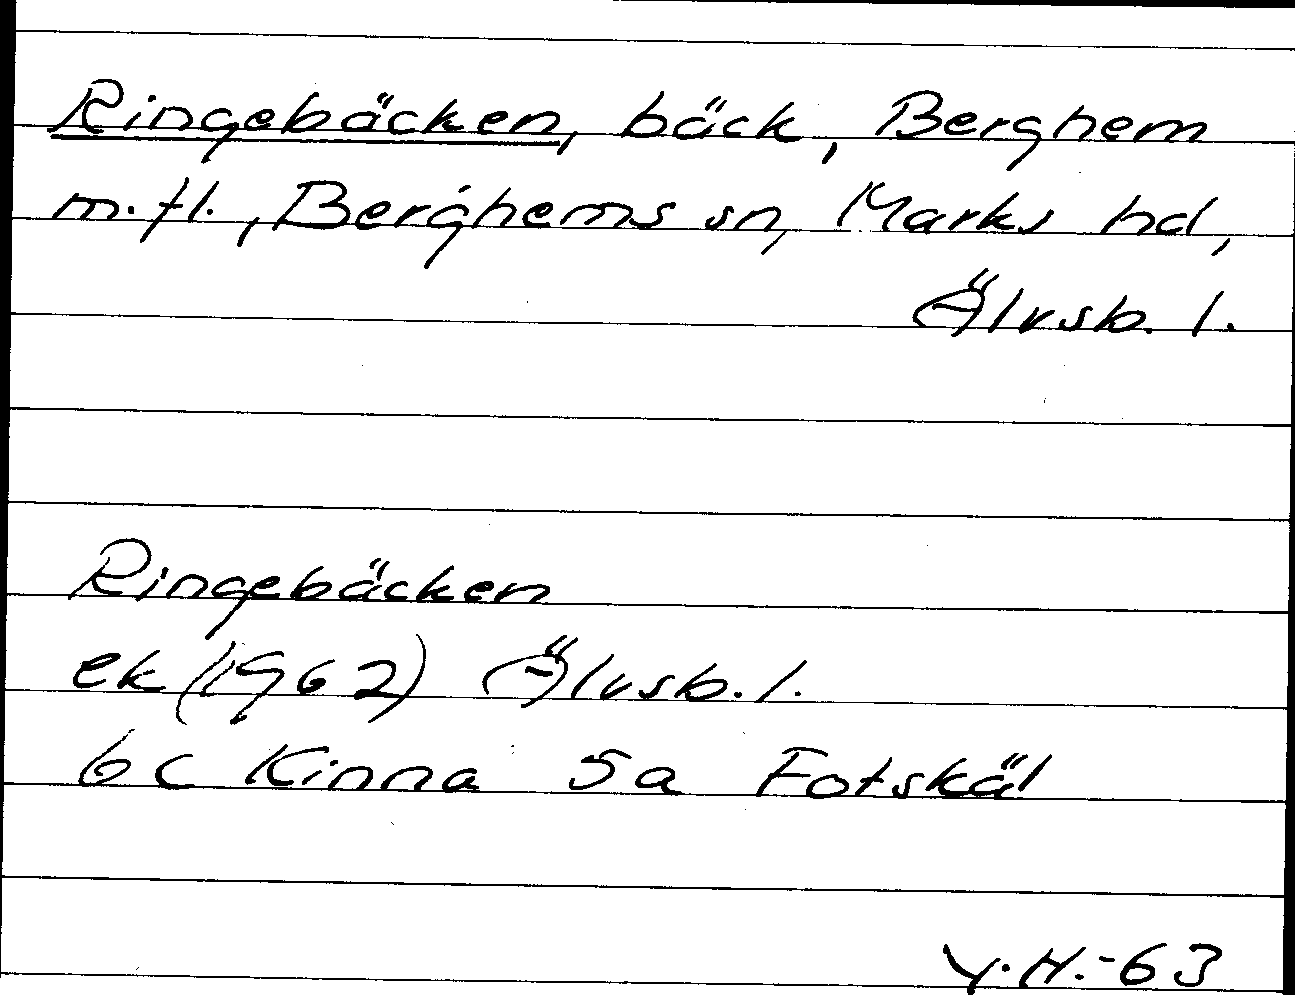 Ringebäcken, bäck, Berghem
m. fl., Berghems sn, Marks hd,
Älvsb. l.
Ringebäcken
ek (1962) Älvsb. l.
6c Kinna 5a Fotskäl
Y.H.-63